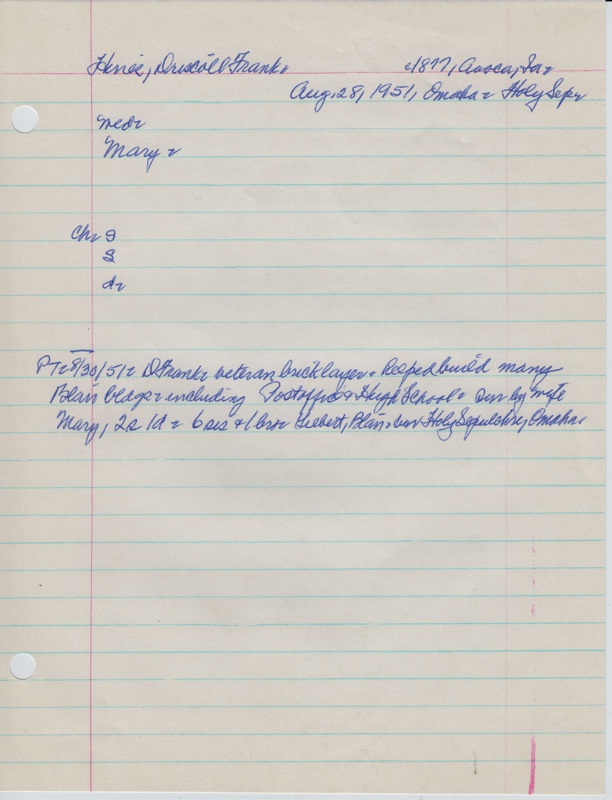 Driscoll Frank- c1877, Avoca, Ia-
Aug. 28, 1951, Omaha- Holy Sep-
Med-
Mary-
Ch- s
s
d-
PT-8/30/51- D Frank- veteran bricklayer- helped build many
Blair bldgs- including Postoffice & High School- sur by wife
Mary, 2s 1d- 6 sis & 1 bro- Blair- bur Holy Sepulchre, Omaha-